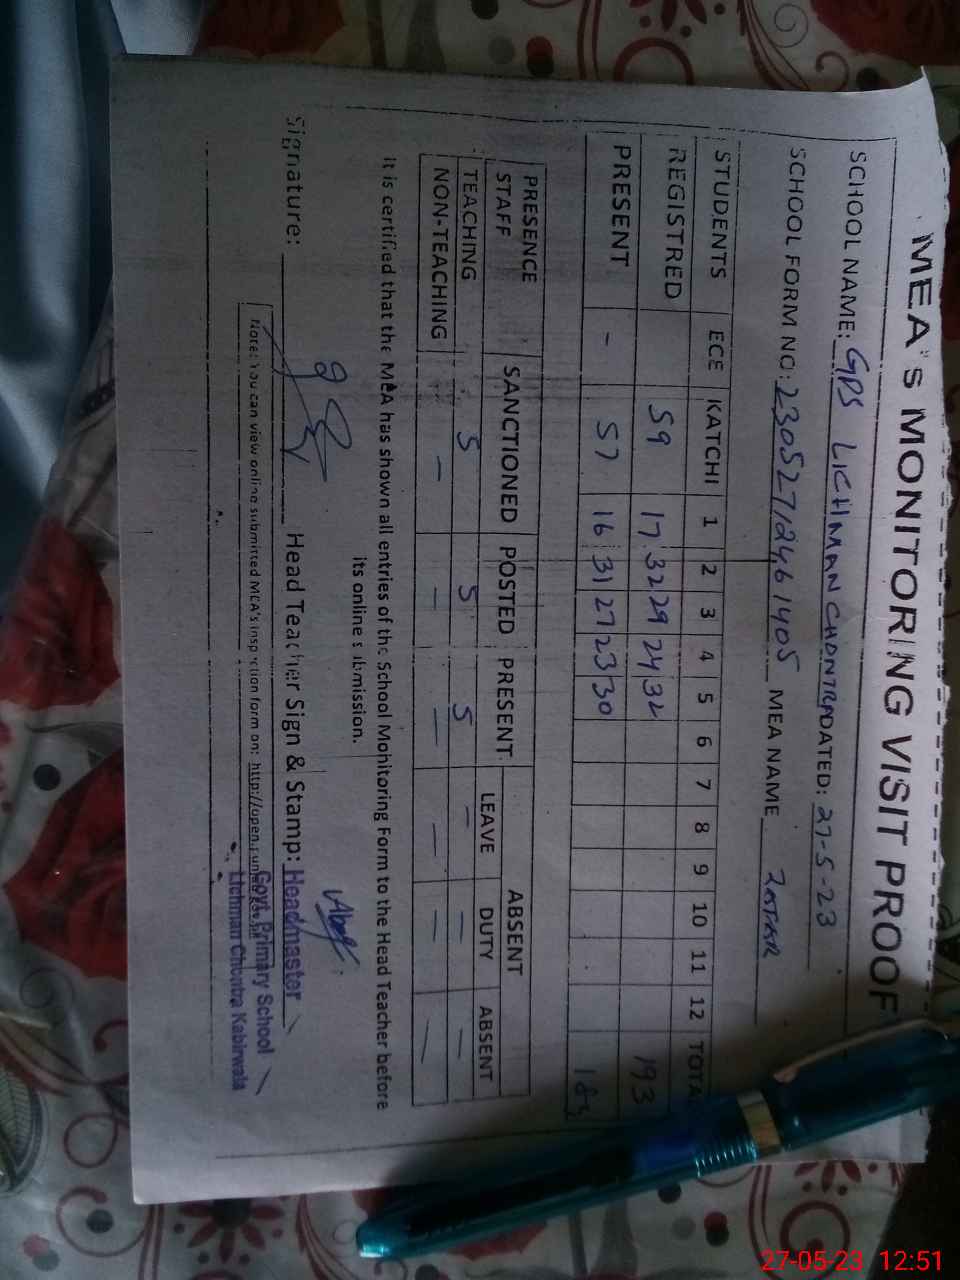 MEA's MONITORING VISIT PROOF
SCHOOL NAME: GPS LICHMAN CHONTRA DATED: 27-5-23
SCHOOL FORM NO: 2305271246 1405 MEA NAME
STUDENTS ECE KATCHI 1 2 3 4 5 6 7 8 9 10 11 12 TOTA
REGISTRED 59 17 32 29 24 32 193
PRESENT - 57 16 31 27 23 30 184
PRESENCE STAFF SANCTIONED POSTED PRESENT ABSENT
LEAVE DUTY ABSENT
TEACHING 5 5 5 - - -
NON-TEACHING - - - - - -
It is certified that the MEA has shown all entries of the School Mohitoring Form to the Head Teacher before
its online submission.
Signature: Head Teacher Sign & Stamp: Headmaster
Govt. Primary School
Lichman Chontra Kabirwala
Note: You can view online submitted MEA's inspection form on: http://open.punjab.gov.pk
27-05-23 12:51